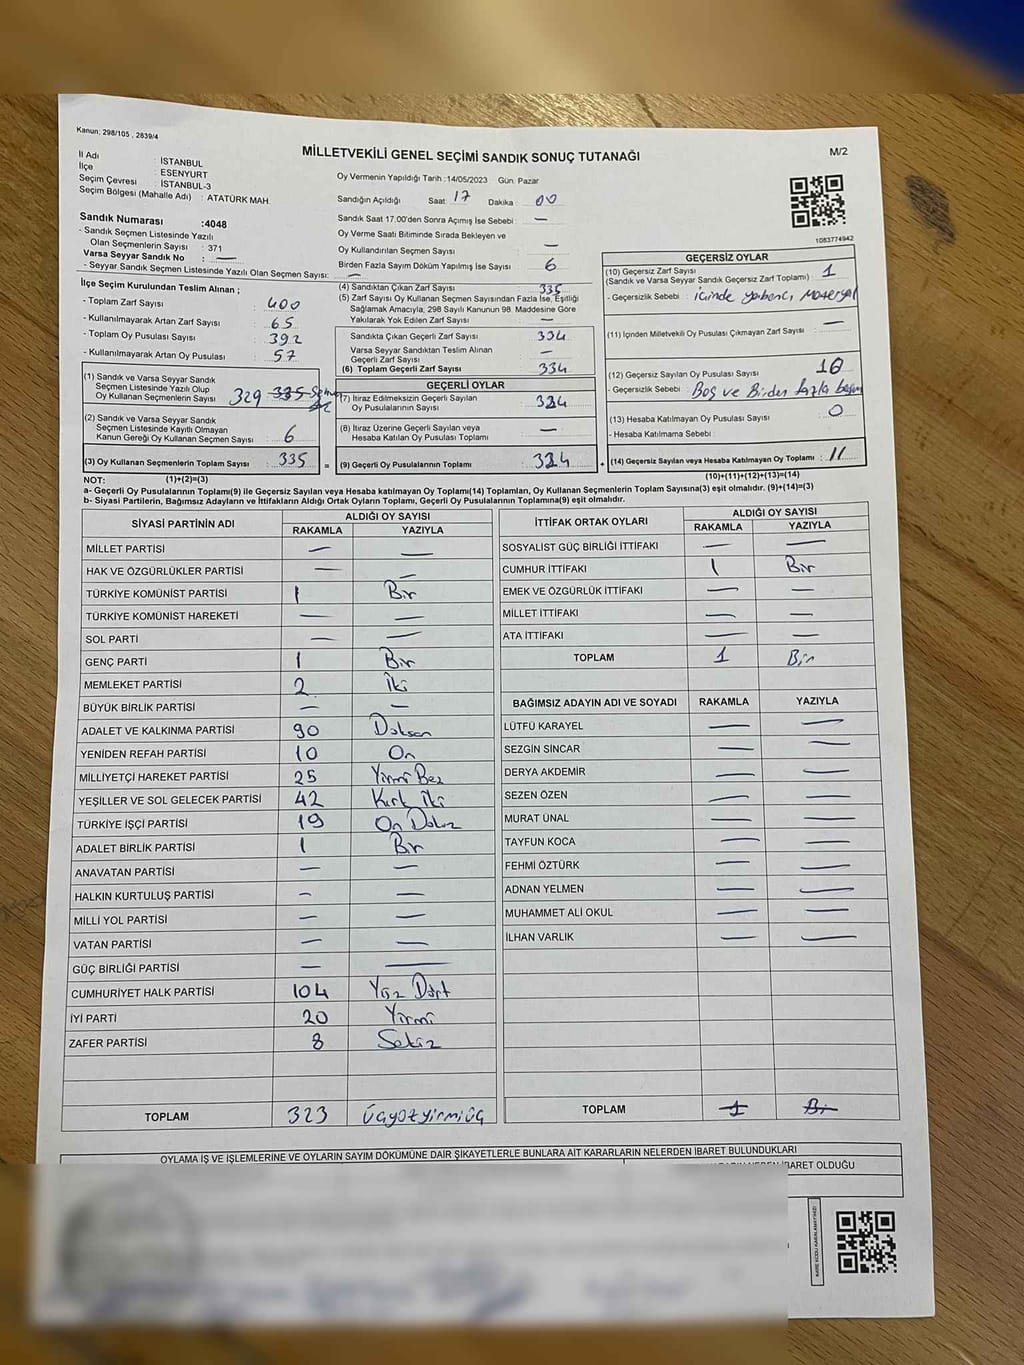 Kanun: 298/105 , 2839/4
MİLLETVEKİLİ GENEL SEÇİMİ SANDIK SONUÇ TUTANAĞI
M/2
İl Adı : İSTANBUL
İlçe : ESENYURT
Seçim Çevresi : İSTANBUL-3
Seçim Bölgesi (Mahalle Adı) : ATATÜRK MAH.
Sandık Numarası :4048
- Sandık Seçmen Listesinde Yazılı
Olan Seçmenlerin Sayısı : 371
Varsa Seyyar Sandık No : —
- Seyyar Sandık Seçmen Listesinde Yazılı Olan Seçmen Sayısı: —
Oy Vermenin Yapıldığı Tarih :14/05/2023 Gün: Pazar
Sandığın Açıldığı Saat: 17 Dakika : 00
Sandık Saat 17.00'den Sonra Açımış İse Sebebi : —
Oy Verme Saati Bitiminde Sırada Bekleyen ve
Oy Kullandırılan Seçmen Sayısı : —
Birden Fazla Sayım Döküm Yapılmış İse Sayısı : 6
1083774942
İlçe Seçim Kurulundan Teslim Alınan ;
- Toplam Zarf Sayısı : 400
- Kullanılmayarak Artan Zarf Sayısı : 65
- Toplam Oy Pusulası Sayısı : 392
- Kullanılmayarak Artan Oy Pusulası : 57
(1) Sandık ve Varsa Seyyar Sandık
Seçmen Listesinde Yazılı Olup
Oy Kullanan Seçmenlerin Sayısı : 329 335
(2) Sandık ve Varsa Seyyar Sandık
Seçmen Listesinde Kayıtlı Olmayan
Kanun Gereği Oy Kullanan Seçmen Sayısı : 6
(3) Oy Kullanan Seçmenlerin Toplam Sayısı : 335 =
(4) Sandıktan Çıkan Zarf Sayısı : 335
(5) Zarf Sayısı Oy Kullanan Seçmen Sayısından Fazla İse, Eşitliği
Sağlamak Amacıyla, 298 Sayılı Kanunun 98. Maddesine Göre
Yakılarak Yok Edilen Zarf Sayısı : —
Sandıkta Çıkan Geçerli Zarf Sayısı : 334
Varsa Seyyar Sandıktan Teslim Alınan
Geçerli Zarf Sayısı : —
(6) Toplam Geçerli Zarf Sayısı : 334
GEÇERLİ OYLAR
(7) İtiraz Edilmeksizin Geçerli Sayılan
Oy Pusulalarının Sayısı : 324
(8) İtiraz Üzerine Geçerli Sayılan veya
Hesaba Katılan Oy Pusulası Toplamı : —
(9) Geçerli Oy Pusulalarının Toplamı : 324 +
GEÇERSİZ OYLAR
(10) Geçersiz Zarf Sayısı : 1
(Sandık ve Varsa Seyyar Sandık Geçersiz Zarf Toplamı)
- Geçersizlik Sebebi : içinde yabancı materyal
(11) İçinden Milletvekili Oy Pusulası Çıkmayan Zarf Sayısı : —
(12) Geçersiz Sayılan Oy Pusulası Sayısı : 10
- Geçersizlik Sebebi : Boş ve Birden fazla
(13) Hesaba Katılmayan Oy Pusulası Sayısı : 0
- Hesaba Katılmama Sebebi :
(14) Geçersiz Sayılan veya Hesaba Katılmayan Oy Toplamı : 11
NOT: (1)+(2)=(3) (10)+(11)+(12)+(13)=(14)
a- Geçerli Oy Pusulalarının Toplamı(9) ile Geçersiz Sayılan veya Hesaba katılmayan Oy Toplamı(14) Toplamları, Oy Kullanan Seçmenlerin Toplam Sayısına(3) eşit olmalıdır. (9)+(14)=(3)
b- Siyasi Partilerin, Bağımsız Adayların ve İttifakların Aldığı Ortak Oyların Toplamı, Geçerli Oy Pusulalarının Toplamına(9) eşit olmalıdır.
SİYASİ PARTİNİN ADI ALDIĞI OY SAYISI
RAKAMLA YAZIYLA
MİLLET PARTİSİ — —
HAK VE ÖZGÜRLÜKLER PARTİSİ — —
TÜRKİYE KOMÜNİST PARTİSİ 1 Bir
TÜRKİYE KOMÜNİST HAREKETİ — —
SOL PARTİ — —
GENÇ PARTİ 1 Bir
MEMLEKET PARTİSİ 2 İki
BÜYÜK BİRLİK PARTİSİ — —
ADALET VE KALKINMA PARTİSİ 90 Doksan
YENİDEN REFAH PARTİSİ 10 On
MİLLİYETÇİ HAREKET PARTİSİ 25 Yirmi Beş
YEŞİLLER VE SOL GELECEK PARTİSİ 42 Kırk İki
TÜRKİYE İŞÇİ PARTİSİ 19 On Dokuz
ADALET BİRLİK PARTİSİ 1 Bir
ANAVATAN PARTİSİ — —
HALKIN KURTULUŞ PARTİSİ — —
MİLLİ YOL PARTİSİ — —
VATAN PARTİSİ — —
GÜÇ BİRLİĞİ PARTİSİ — —
CUMHURİYET HALK PARTİSİ 104 Yüz Dört
İYİ PARTİ 20 Yirmi
ZAFER PARTİSİ 8 Sekiz
TOPLAM 323 üçyüzyirmiüç
İTTİFAK ORTAK OYLARI ALDIĞI OY SAYISI
RAKAMLA YAZIYLA
SOSYALIST GÜÇ BİRLİĞİ İTTİFAKI — —
CUMHUR İTTİFAKI 1 Bir
EMEK VE ÖZGÜRLÜK İTTİFAKI — —
MİLLET İTTİFAKI — —
ATA İTTİFAKI — —
TOPLAM 1 Bir
BAĞIMSIZ ADAYIN ADI VE SOYADI RAKAMLA YAZIYLA
LÜTFÜ KARAYEL — —
SEZGİN SİNCAR — —
DERYA AKDEMİR — —
SEZEN ÖZEN — —
MURAT ÜNAL — —
TAYFUN KOCA — —
FEHMİ ÖZTÜRK — —
ADNAN YELMEN — —
MUHAMMET ALİ OKUL — —
İLHAN VARLIK — —
TOPLAM 1 Bir
OYLAMA İŞ VE İŞLEMLERİNE VE OYLARIN SAYIM DÖKÜMÜNE DAİR ŞİKAYETLERLE BUNLARA AİT KARARLARIN NELERDEN İBARET BULUNDUKLARI
İBARET OLDUĞU
KARE KODU KARALAMAYINIZ!